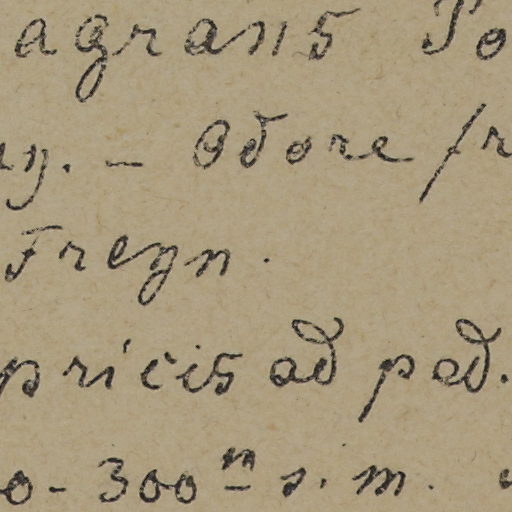 agrans Po
ey. – Odore fr
Freyn.
pricis ad pad.
0-300 m s. m.